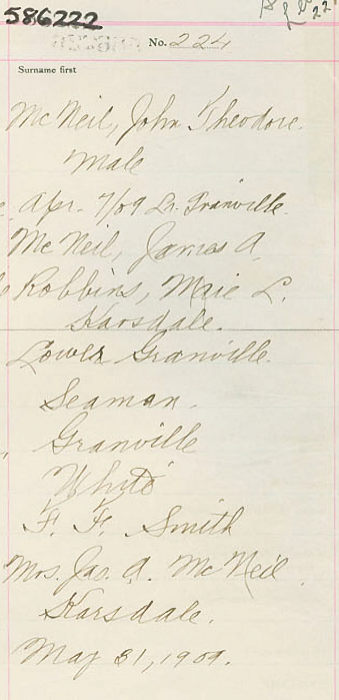 586222
No. 224
Surname first
McNeil, John Theodore.
Male
Apr. 7/09 Lr. Granville.
McNeil, James A.
Robbins, Marie L.
Karsdale.
Lower Granville.
Seaman.
Granville
White
F. F. Smith
Mrs. Jas. A. McNeil
Karsdale.
May 31, 1909.